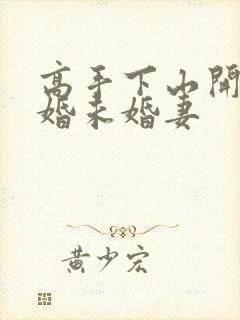 高手下山開
婚未婚妻
黄少宏